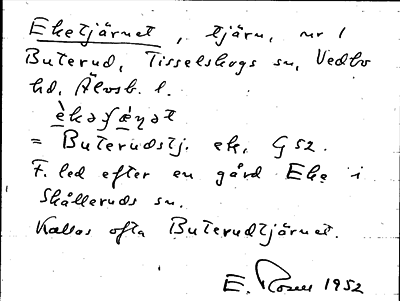 Eketjärnet, tjärn, nr 1
Buterud, Tisselskogs sn, Vedbo
hd, Älvsb. l.
= Buterudstj. ek. G 52.
F. led efter en gård Eke i
Skålleruds sn.
Kallas ofta Buterudtjärnet.
E. Rosell 1952